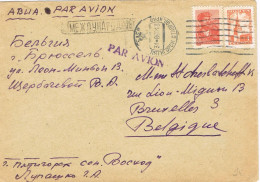 АВИА. PAR AVION
МЕЖДУНАРОДНОЕ
PAR AVION
Бельгия
г. Брюссель
ул. Леон-Миньон 13.
Щербачевой В. А.
Mme
rue Léon-Mignon 13
Bruxelles 3
Belgique
г. Пятигорск сан. "Восход"
Г. А.